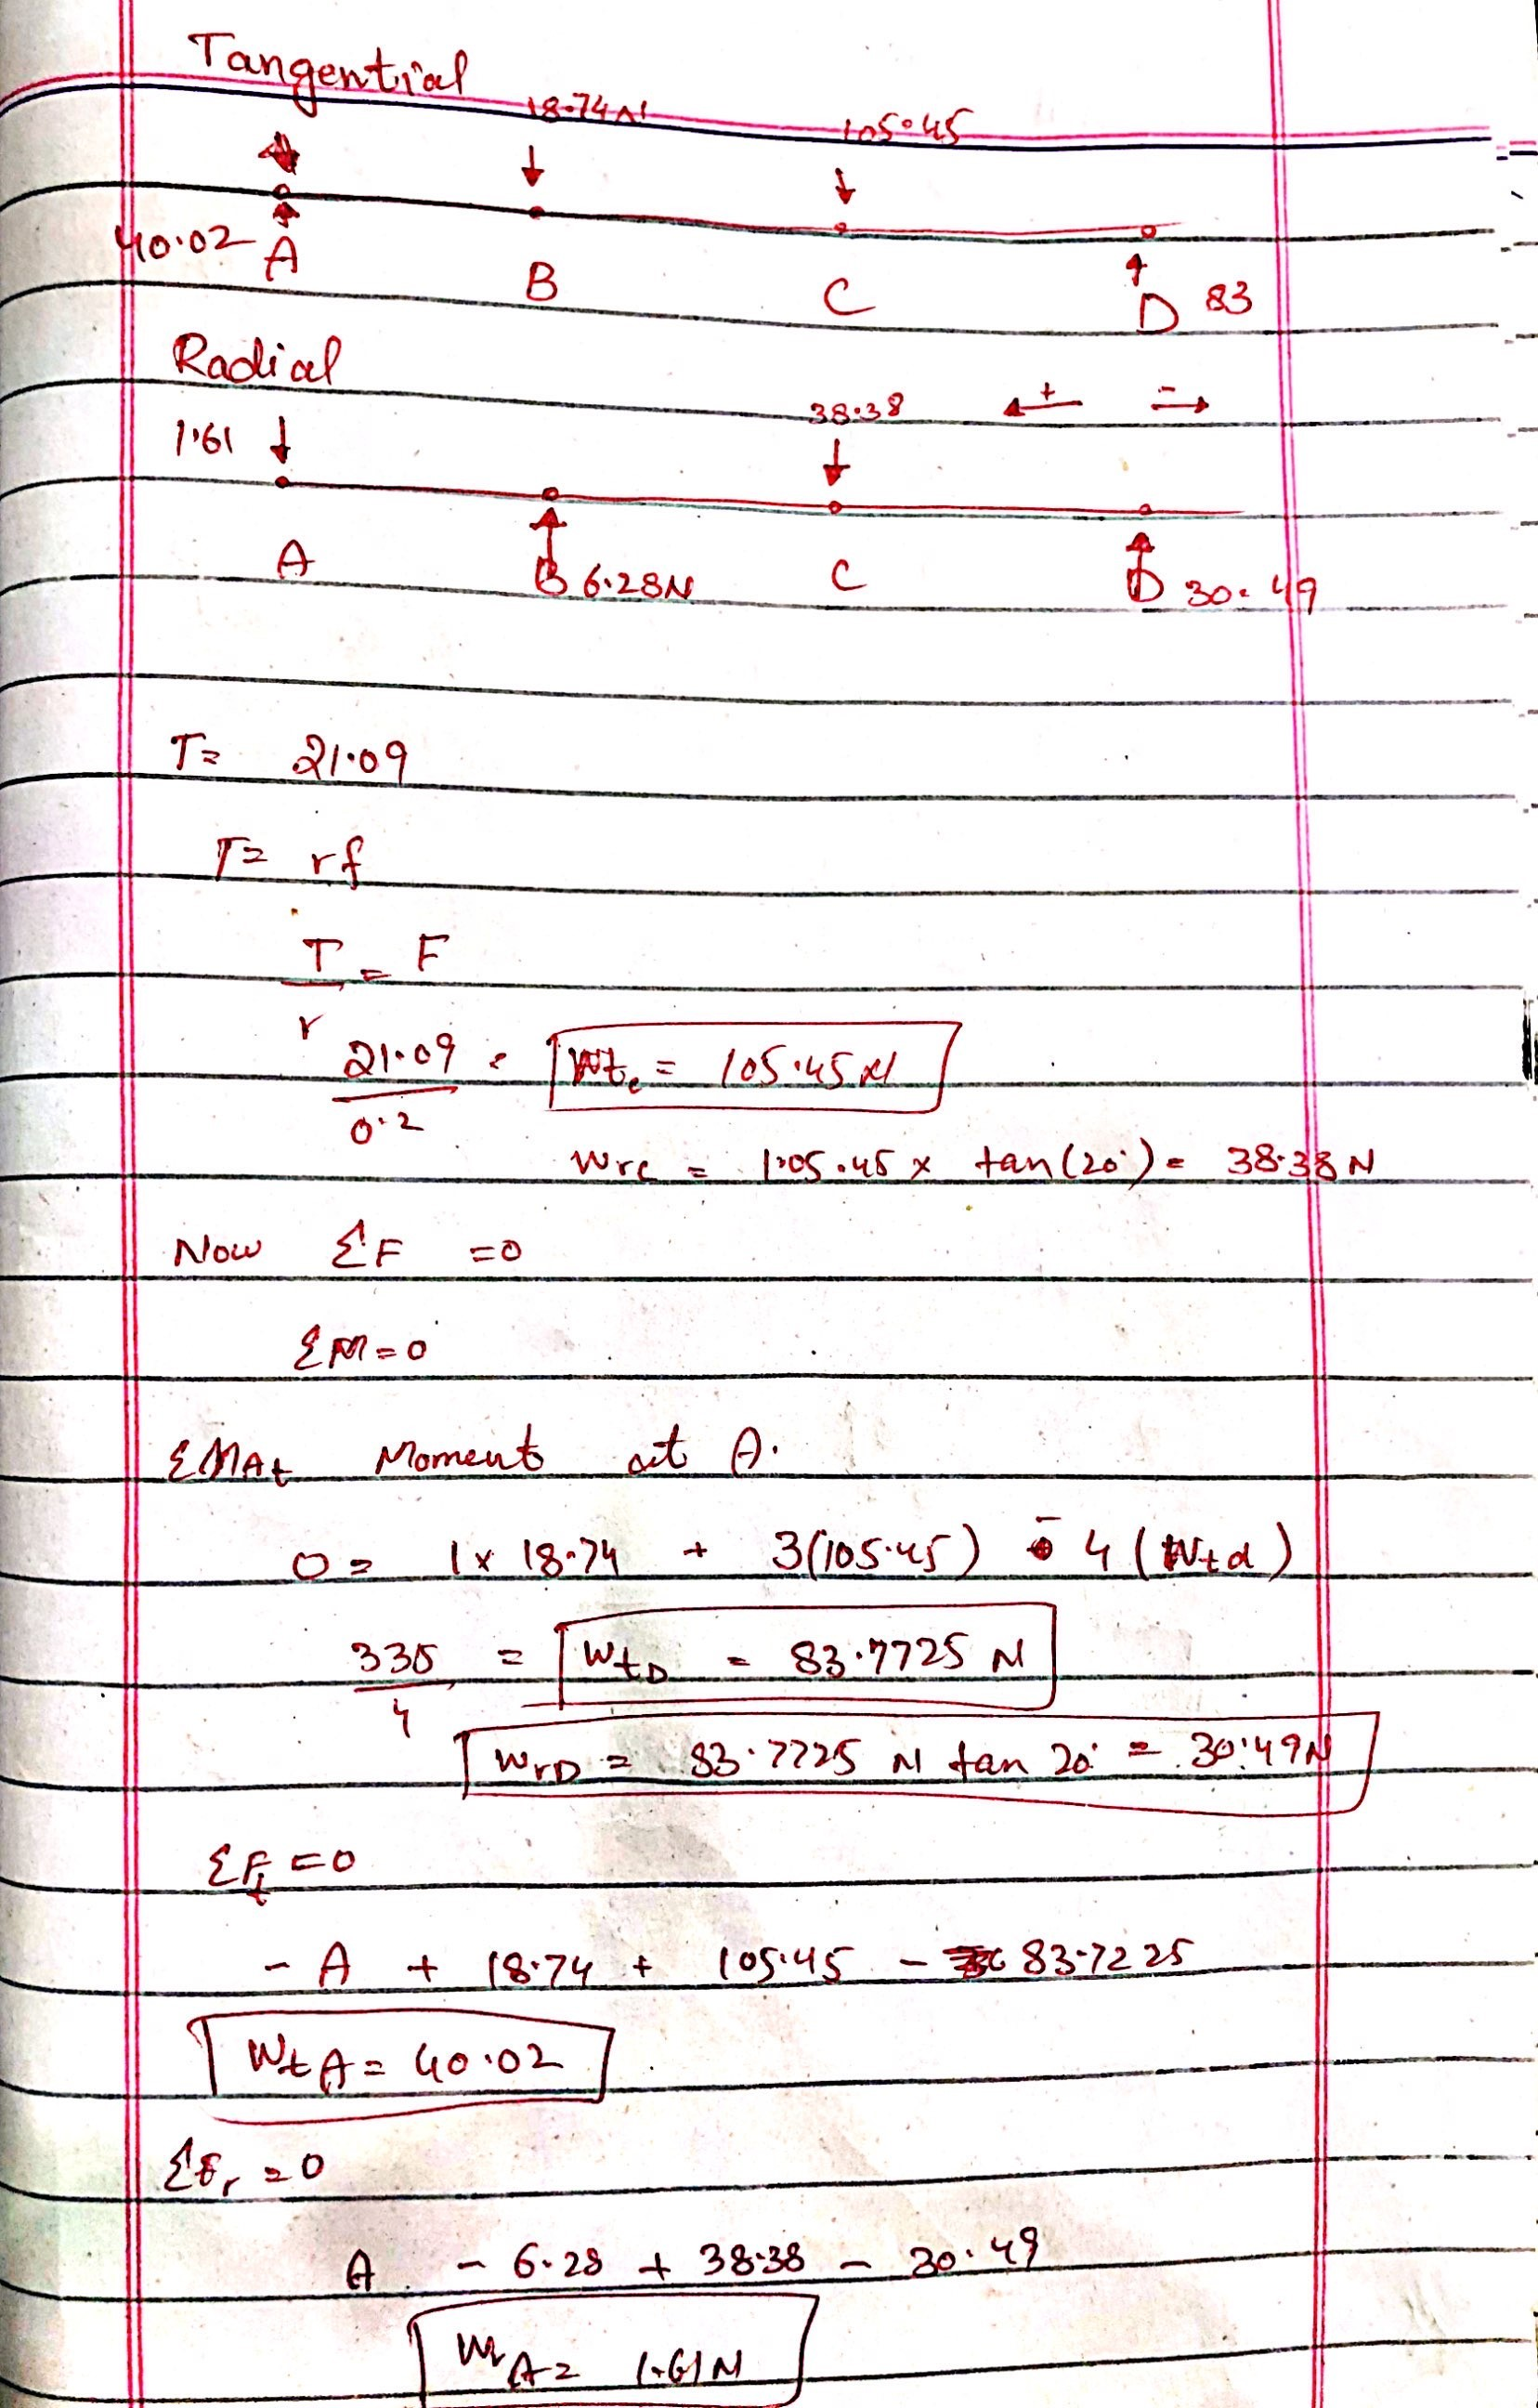 Tangential
18.74N 105.45
40.02 A B C D 83
Radial
38.38 + -
1.61
A B 6.28N C D 30.49
T= 21.09
T= rf
T = F
r
21.09 = Wtc = 105.45N
0.2
Wrc = 105.45 x tan(20°) = 38.38 N
Now ΣF =0
ΣM=0
ΣMAt Moment at A.
0 = 1x 18.74 + 3(105.45) - 4 (Wtd)
335 = WtD = 83.7725 N
4
WrD = 83.7725 N tan 20° = 30.49N
ΣFt =0
- A + 18.74 + 105.45 - 83.7225
WtA = 40.02
ΣFr =0
A - 6.28 + 38.38 - 30.49
WrA = 1.61N